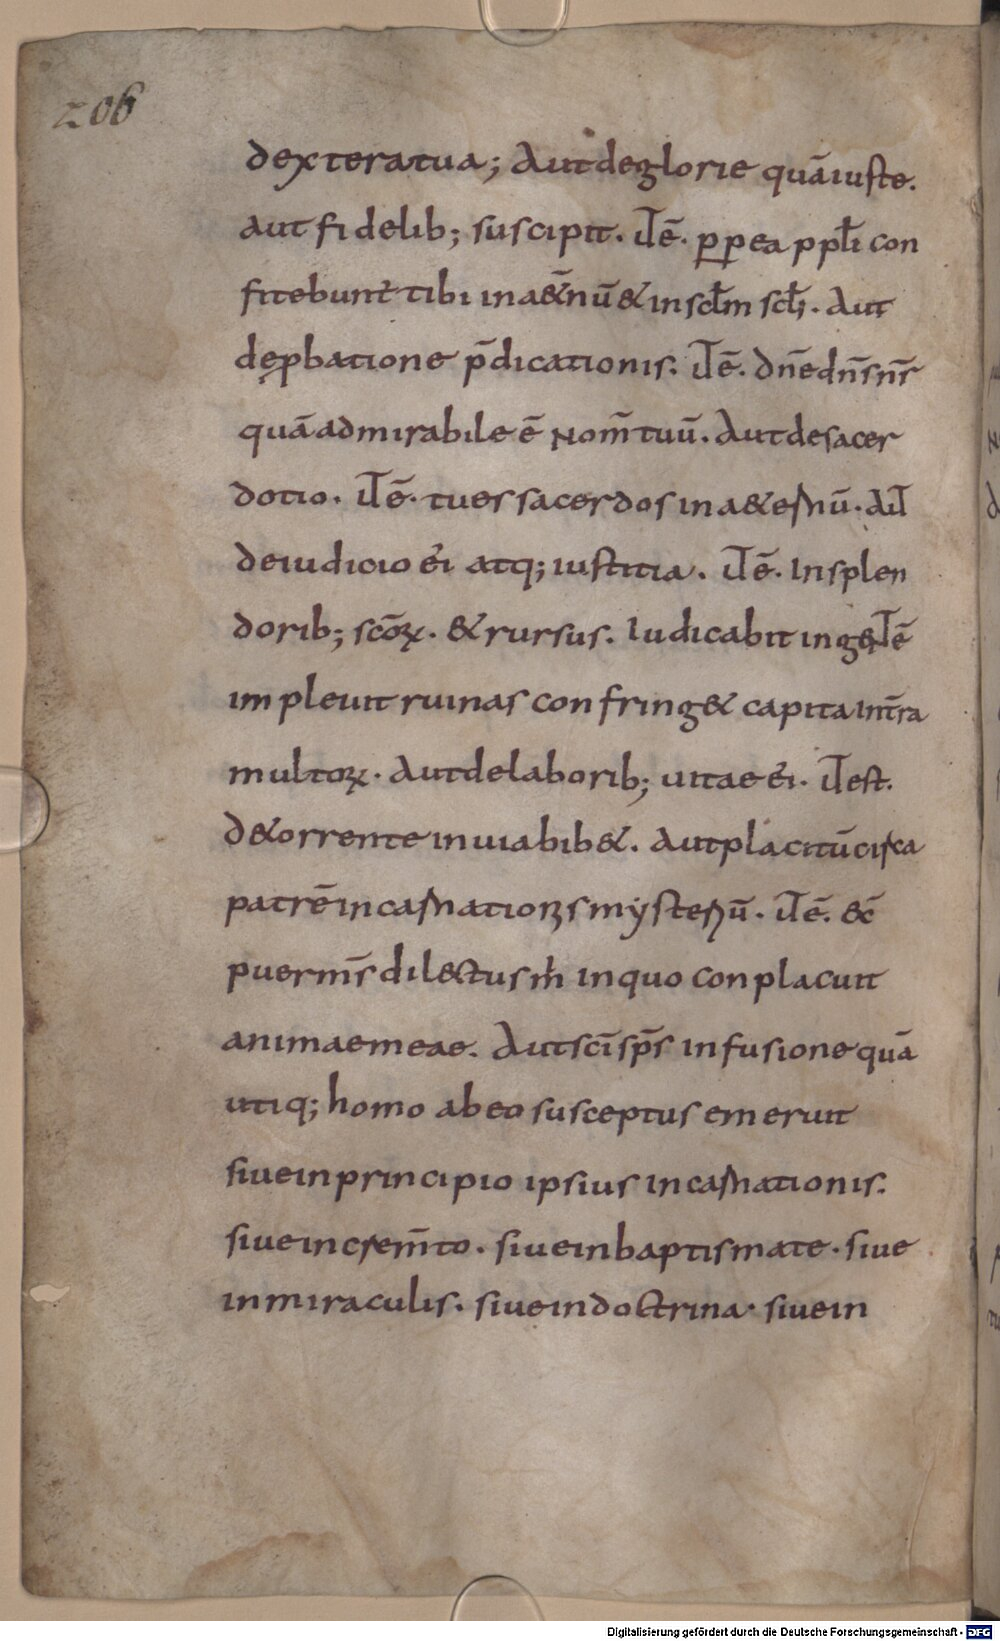 206
dextera tua; Aut de glorie quā iuste.
aut fidelib; suscipit. iƚē. ꝓpea ppƚi con
fitebunt tibi in a&̄nū & in scƚm scƚi. Aut
de ꝓbatione p̄dicationis. iƚē. dn̄e dn̄s n̄r
quā admirabile ē nom̄ tuū. Aut de sacer
dotio. iƚē. tu es sacerdos in a&ernū. Aiƚ
de iudicio ei atq; iustitia. iƚē. In splen
dorib; scōꝝ. & rursus. Iudicabit in g&
impleuit ruinas confring& capita in t̄ra
multoꝝ. Aut de laborib; uitae ei. iƚ est.
de torrente in uia bib&. Aut placitū circa
patrē incarnationis mẏsteriū. iƚē. &c̄
puer m̄s dilectus m̄ in quo conplacuit
animae meae. Aut sc̄i sp̄s infusione quā
utiq; homo ab eo susceptus emeruit
siue in principio ipsius incarnationis.
siue in crem̄to. siue in baptismate. siue
in miraculis. siue in doctrina. siue in
Digitalisierung gefördert durch die Deutsche Forschungsgemeinschaft - DFG